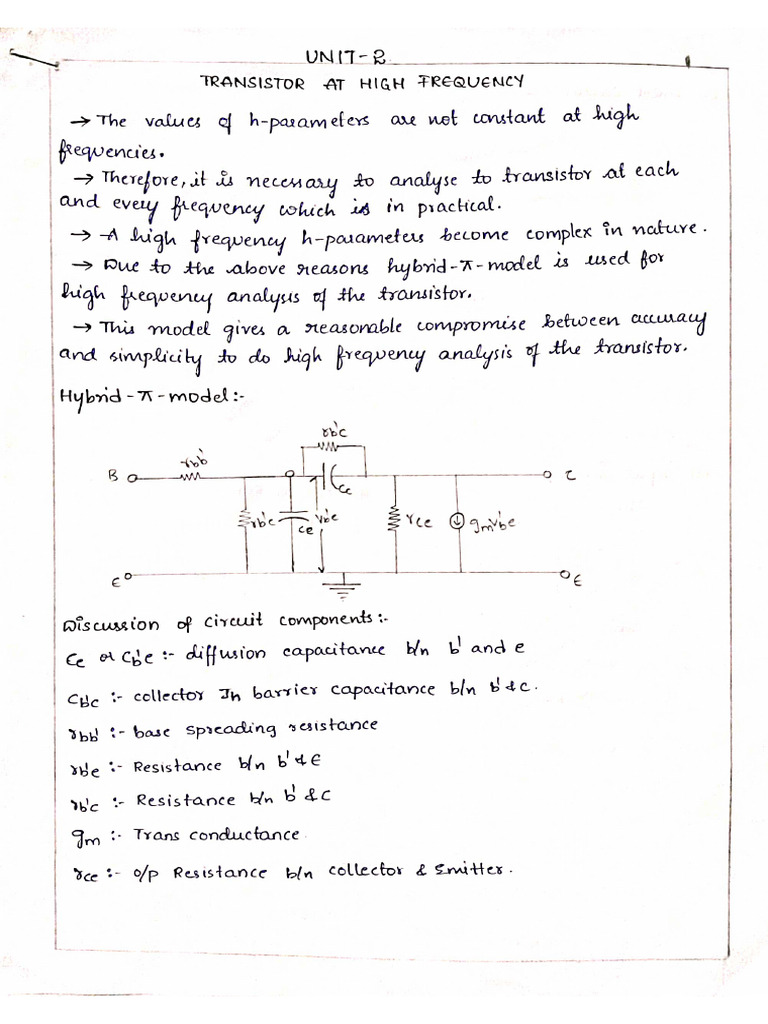 UNIT-2
TRANSISTOR AT HIGH FREQUENCY
→ The values of h-parameters are not constant at high
frequencies.
→ Therefore, it is necessary to analyse to transistor at each
and every frequency which is in practical.
→ A high frequency h-parameters become complex in nature.
→ Due to the above reasons hybrid-π-model is used for
high frequency analysis of the transistor.
→ This model gives a reasonable compromise between accuracy
and simplicity to do high frequency analysis of the transistor.
Hybrid-π-model:-
rb'c
rbb'
B
Cc
C
rb'e
Ce
Vb'e
rce
gmVb'e
E
E
Discussion of circuit components:-
Ce or Cb'e :- diffusion capacitance b/n b' and e
Cb'c :- collector Jn barrier capacitance b/n b' & c.
rbb' :- base spreading resistance
rb'e :- Resistance b/n b' & E
rb'c :- Resistance b/n b' & C
gm :- Trans conductance.
rce :- o/p Resistance b/n collector & Emitter.